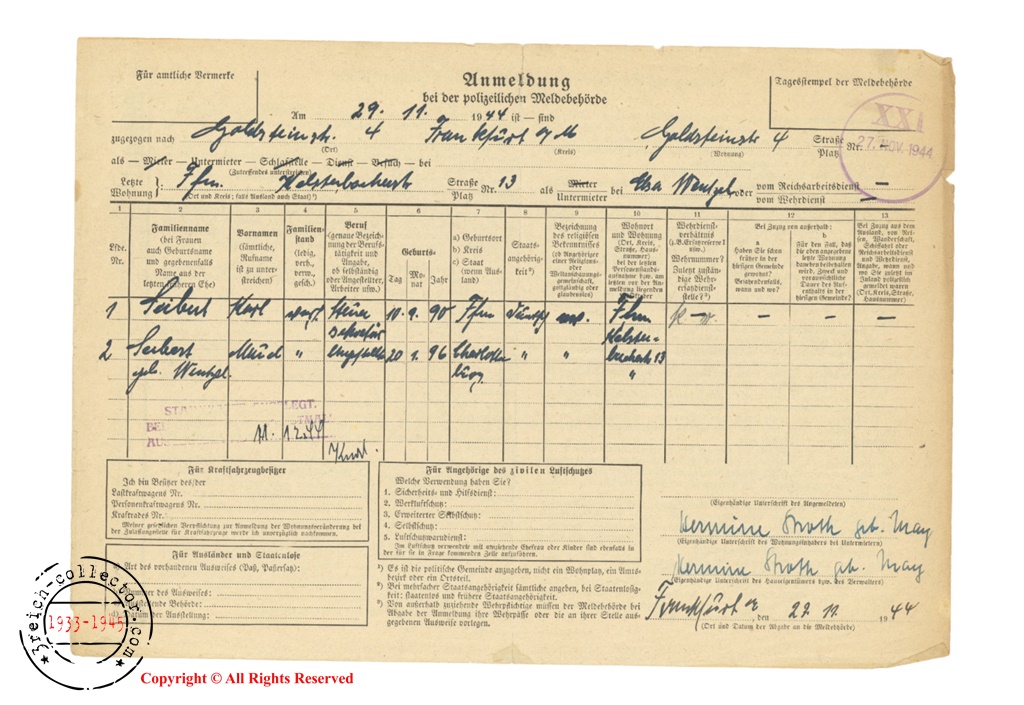 Für amtliche Vermerke
Anmeldung
bei der polizeilichen Meldebehörde
Tagesstempel der Meldebehörde
XXI
27. NOV. 1944
Am 29. 11. 1944 ist — sind
zugezogen nach Goldsteinstr. 4 Frankfurt a/M, Goldsteinstr 4 Straße Nr. —
Platz
(Ort) (Kreis) (Wohnung)
als — Mieter — Untermieter — Schlafstelle — Dienst — Besuch — bei
(Zutreffendes unterstreichen)
Letzte Wohnung: Ffm. Kelsterbacherstr Straße Nr. 13 als Mieter bei Elsa Wentzel oder vom Reichsarbeitsdienst —
Platz Untermieter vom Wehrdienst
(Ort und Kreis; falls Ausland auch Staat)
1 2 3 4 5 6 7 8 9 10 11 12 13
Lfde. Nr.
Familienname
(bei Frauen
auch Geburtsname
und gegebenenfalls
Name aus der
letzten früheren Ehe)
Vornamen
(sämtliche,
Rufname
ist zu unter-
streichen)
Familien-
stand
(ledig,
verh.,
verw.,
gesch.)
Beruf
(genaue Bezeich-
nung der Berufs-
tätigkeit und
Angabe,
ob selbständig
oder Angestellter,
Arbeiter usw.)
Geburts-
Tag Mo-nat Jahr
a) Geburtsort
b) Kreis
c) Staat
(wenn Aus-
land)
Staats-
angehörig-
keit ²)
Bezeichnung
des religiösen
Bekenntnisses
Wohnort
und Wohnung
(Ort, Kreis,
Straße, Haus-
nummer)
bei der letzten
Personenstands-
aufnahme
Wehrdienst-
verhältnis
(z.B. Ersatzreserve I
usw.)
Wehrnummer?
Zuletzt zustän-
dige Wehr-
ersatzdienst-
stelle? ³)
Bei Zuzug von außerhalb:
a
Haben Sie schon
früher in der
hiesigen Gemeinde
gewohnt?
Bejahendenfalls,
wann und wo?
b
Für den Fall, daß
die oben angegebene
letzte Wohnung
daneben beibehalten
wird, Zweck und
voraussichtliche
Dauer des Auf-
enthalts in der
hiesigen Gemeinde?
Bei Zuzug aus dem
Ausland, von Rei-
sen, Wanderschaft,
Schiffahrt oder
Reichsarbeitsdienst
und Wehrdienst,
Angabe, wann und
wo Sie zuletzt im
Inland polizeilich
gemeldet waren
(Ort, Kreis, Straße,
Hausnummer)
1 Seibert Karl 10. 9. 90 Ffm — — —
sekretär Kelster-
2 Seibert " 20 1. 96 Charlotten " " 13
geb. Wentzel. burg "
11. 12. 44
Für Kraftfahrzeugbesitzer
Ich bin Besitzer des/der
Lastkraftwagens Nr.
Personenkraftwagens Nr.
Kraftrades Nr.
Meiner gesetzlichen Verpflichtung zur Anmeldung der Wohnungsveränderung bei
der Zulassungsstelle für Kraftfahrzeuge werde ich unverzüglich nachkommen.
Für Ausländer und Staatenlose
Art des vorhandenen Ausweises (Paß, Passersatz):
Nummer des Ausweises:
Behörde:
Datum der Ausstellung:
Für Angehörige des zivilen Luftschutzes
Welche Verwendung haben Sie?
1. Sicherheits- und Hilfsdienst:
2. Werkluftschutz:
3. Erweiterter Selbstschutz:
4. Selbstschutz:
5. Luftschutzwarndienst:
Im Luftschutz verwendete mit umziehende Ehefrau oder Kinder sind ebenfalls in
der für sie in Frage kommenden Zeile aufzuführen.
¹) Es ist die politische Gemeinde anzugeben, nicht ein Wohnplatz, ein Amts-
bezirk oder ein Ortsteil.
²) Bei mehrfacher Staatsangehörigkeit sämtliche angeben, bei Staatenlosig-
keit: staatenlos und frühere Staatsangehörigkeit.
³) Von außerhalb zuziehende Wehrpflichtige müssen der Meldebehörde bei
der Anmeldung ihre Wehrpässe oder die an ihrer Stelle aus-
gegebenen Ausweise vorlegen.
(Eigenhändige Unterschrift des Angemeldeten)
Hermine Stroth geb. May
(Eigenhändige Unterschrift des Wohnungsinhabers bei Untermietern)
Hermine Stroth geb. May
(Eigenhändige Unterschrift des Hauseigentümers bzw. des Verwalters)
Frankfurt a, den 22. 11. 1944
(Ort und Datum der Abgabe an die Meldebehörde)
3reich-collector.com
1933-1945
Copyright © All Rights Reserved